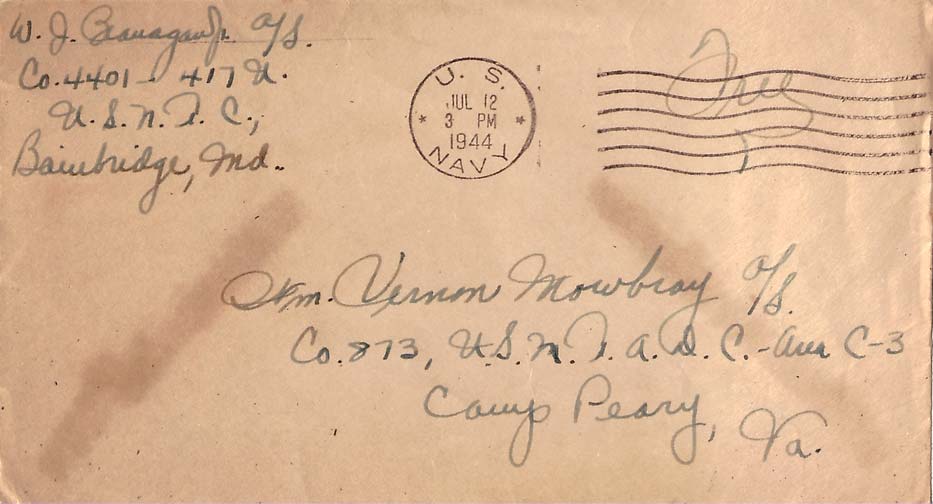 W. J. Branagan Jr. A/S.
Co. 4401 - 417 U.
U.S.N.T.C.,
Bainbridge, Md..
U. S.
JUL 12
3 PM
1944
NAVY
Free
Wm. Vernon Mowbray A/S.
Co. 873, U.S.N.T.A.D.C.-Area C-3
Camp Peary,
Va.